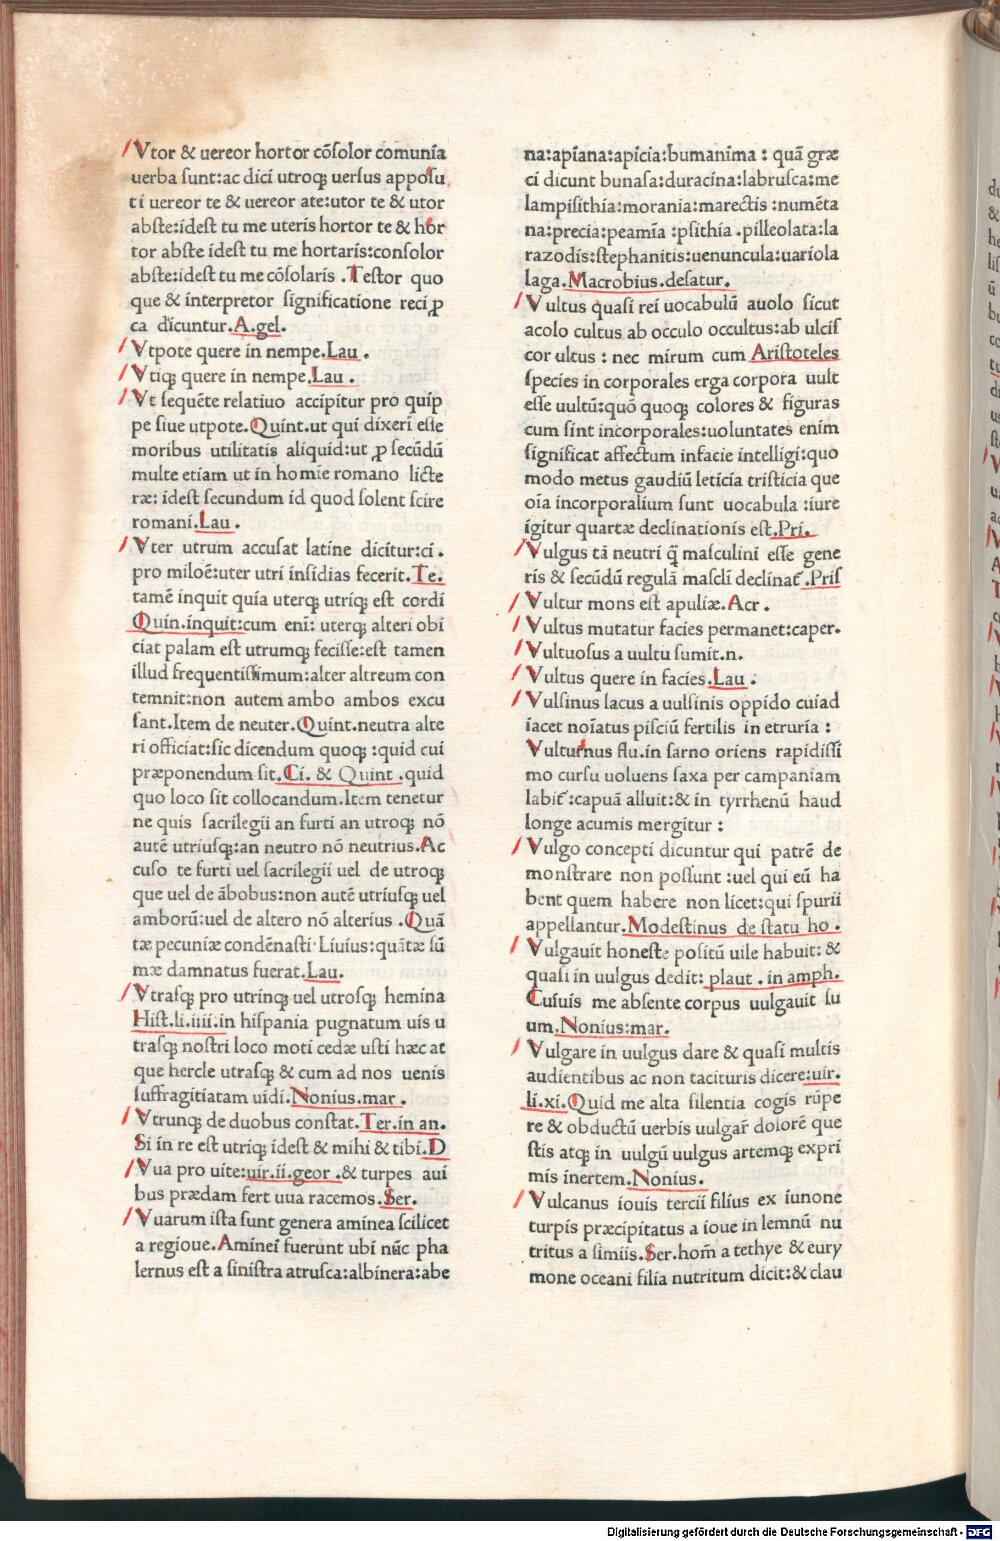 Vtor & uereor hortor cōsolor comunia
uerba sunt:ac dici utroqꝫ uersus apposu
ti uereor te & uereor ate:utor te & utor
abste:idest tu me uteris hortor te & hor
tor abste idest tu me hortaris:consolor
abste:idest tu me cōsolaris .Testor quo
que & interpretor significatione recip̱
ca dicuntur.A.gel.
Vtpote quere in nempe.Lau .
Vtiqꝫ quere in nempe.Lau .
Vt sequēte relatiuo accipitur pro quip
pe siue utpote.Quint.ut qui dixeri esse
moribus utilitatis aliquid:ut ꝓ secūdū
multe etiam ut in homie romano licte
ræ: idest secundum id quod solent scire
romani.Lau .
Vter utrum accusat latine dicitur:ci .
pro miloē:uter utri insidias fecerit.Te.
tamē inquit quia uterqꝫ utriqꝫ est cordi
Quin.inquit:cum eni: uterqꝫ alteri obi
ciat palam est utrumqꝫ fecisse:est tamen
illud frequentissimum:alter altreum con
temnit:non autem ambo ambos excu
sant.Item de neuter.Quint.neutra alte
ri officiat:sic dicendum quoqꝫ :quid cui
præponendum sit.Ci. & Quint .quid
quo loco sit collocandum.Item tenetur
ne quis sacrilegii an furti an utroqꝫ nō
autē utriusqꝫ:an neutro nō neutrius.Ac
cuso te furti uel sacrilegii uel de utroqꝫ
que uel de ābobus:non autē utriusqꝫ uel
amborū:uel de altero nō alterius .Quā
tæ pecuniæ condēnasti Liuius:quātæ sū
mæ damnatus fuerat.Lau.
Vtrasqꝫ pro utrinqꝫ uel utrosqꝫ hemina
Hist.li.iiii.in hispania pugnatum uis u
trasqꝫ nostri loco moti cedæ usti hæc at
que hercle utrasqꝫ & cum ad nos uenis
suffragitiatam uidi.Nonius.mar .
Vtrunqꝫ de duobus constat.Ter.in an.
Si in re est utriqꝫ idest & mihi & tibi.D
Vua pro uite:uir.ii.geor .& turpes aui
bus prædam fert uua racemos.Ser.
Vuarum ista sunt genera aminea scilicet
a regioue.Aminei fuerunt ubi nūc pha
lernus est a sinistra atrusca:albinera:abe
na:apiana:apicia:bumanima : quā græ
ci dicunt bunasa:duracina:labrusca:me
lampisithia:morania:marectis :numēta
na:precia:peamia :psithia .pilleolata:la
razodis:stephanitis:uenuncula:uariola
laga.Macrobius.desatur.
Vultus quasi rei uocabulū auolo sicut
acolo cultus ab occulo occultus:ab ulcis
cor ultus : nec mirum cum Aristoteles
species in corporales erga corpora uult
esse uultū:quō quoqꝫ colores & figuras
cum sint incorporales:uoluntates enim
significat affectum infacie intelligi:quo
modo metus gaudiū leticia tristicia que
oīa incorporalium sunt uocabula :iure
igitur quartæ declinationis est.Pri.
Vulgus tā neutri q̄ masculini esse gene
ris & secūdū regulā mascli declinat̄ .Pris
Vultur mons est apuliæ.Acr .
Vultus mutatur facies permanet:caper.
Vultuosus a uultu sumit.n.
Vultus quere in facies.Lau .
Vulsinus lacus a uulsinis oppido cuiad
iacet noīatus pisciū fertilis in etruria :
Vulturnus flu.in sarno oriens rapidissi
mo cursu uoluens saxa per campaniam
labit̄ :capuā alluit:& in tyrrhenū haud
longe acumis mergitur :
Vulgo concepti dicuntur qui patrē de
monstrare non possunt :uel qui eū ha
bent quem habere non licet:qui spurii
appellantur.Modestinus de statu ho .
Vulgauit honeste positū uile habuit: &
quasi in uulgus dedit: plaut . in amph.
Cuiuis me absente corpus uulgauit su
um.Nonius:mar.
Vulgare in uulgus dare & quasi multis
audientibus ac non tacituris dicere:uir.
li.xi.Quid me alta silentia cogis rūpe
re & obductū uerbis uulgar̄ dolorē que
stis atqꝫ in uulgū uulgus artemqꝫ expri
mis inertem.Nonius.
Vulcanus iouis tercii filius ex iunone
turpis præcipitatus a ioue in lemnū nu
tritus a simiis.Ser.hom̄ a tethye & eury
mone oceani filia nutritum dicit:& clau
Digitalisierung gefördert durch die Deutsche Forschungsgemeinschaft - DFG